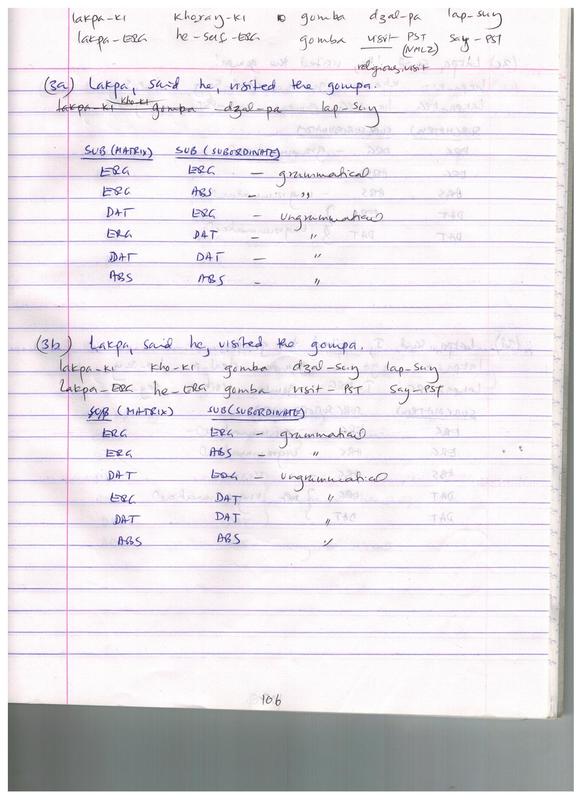 lakpa-ki khoraŋ-ki gomba dzal-pa lap-suŋ
lakpa-ERG he-self-ERG gomba visit PST say-PST
(NMLZ)
religious visit
(3a) Lakpa, said he, visited the gompa.
lakpa-ki kho-ki gomba dzal-pa lap-suŋ
SUB (MATRIX) SUB (SUBORDINATE)
ERG ERG - grammatical
ERG ABS - "
DAT ERG - ungrammatical
ERG DAT - "
DAT DAT - "
ABS ABS - "
(3b) Lakpa, said he, visited the gompa.
lakpa-ki kho-ki gomba dzal-suŋ lap-suŋ
Lakpa-ERG he-ERG gomba visit-PST say-PST
SUB (MATRIX) SUB (SUBORDINATE)
ERG ERG - grammatical
ERG ABS - "
DAT ERG - ungrammatical
ERG DAT "
DAT DAT "
ABS ABS "
106